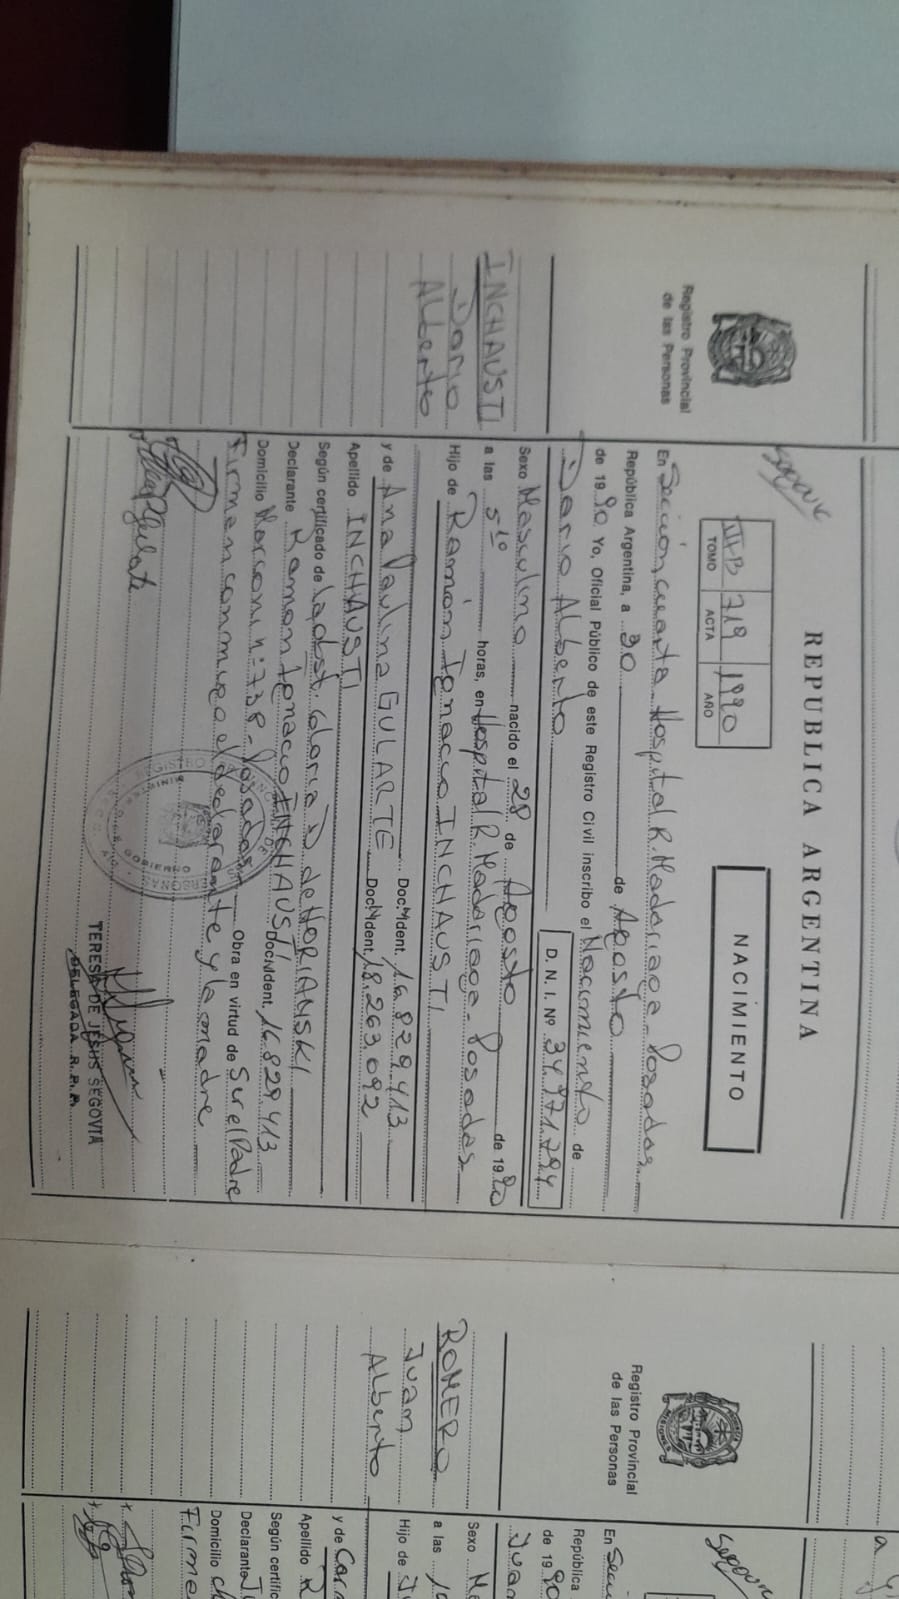 REPUBLICA ARGENTINA
Registro Provincial
de las Personas
III-B 718 1990
TOMO ACTA AÑO
NACIMIENTO
INCHAUSTI
Dario
Alberto
En Sección cuarta Hospital R. Madariaga - Posadas
República Argentina, a 30 de Agosto
de 1990 Yo, Oficial Público de este Registro Civil inscribo el Nacimiento de
Dario Alberto D. N. I. Nº 34.971.794
Sexo Masculino nacido el 28 de Agosto de 1990
a las 5 10 horas, en Hospital R. Madariaga - Posadas
Hijo de Ramón Ignacio INCHAUSTI
Doc. Ident. 16.829.413
y de Ana Paulina GULARTE Doc. Ident. 18.263.092
Apellido INCHAUSTI
Según certificado de la obst. Gloria D de HORIANSKI
Declarante Ramon Ignacio INCHAUSTI Doc. Ident. 16.829.413
Domicilio Marconi nº 738 - Posadas Obra en virtud de Ser el Padre
Firman conmigo el declarante y la madre
TERESA DE JESUS SEGOVIA
DELEGADA R.P.P.
Registro Provincial
de las Personas
ROMERO
Juan
Alberto
En
República
de 1990
Juan
Sexo
a las
Hijo de
y de
Apellido R
Según certific
Declarante
Domicilio